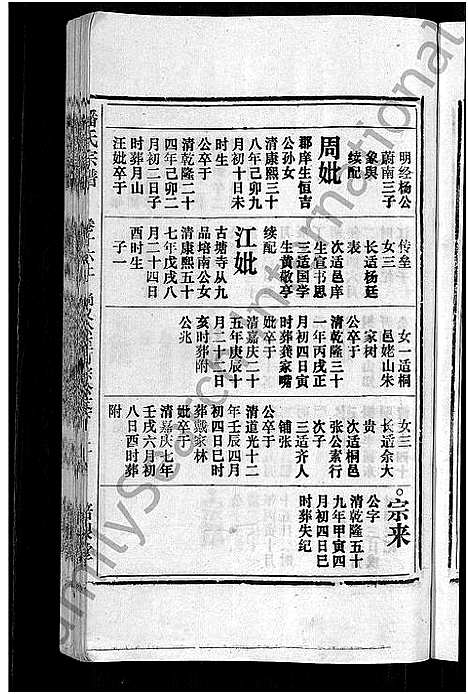 明经杨公
蔚南三子
象與
续配
周妣
郡庠生恒吉
公孙女
清康熙三十
八年己卯九
月初十日未
时生
公卒于
清乾隆二十
四年己卯二
月初二日子
时葬月山
汪妣卒于
传垒
女三
长适杨廷
表
次适邑庠
生宣书恩
三适国学
生黄敬亭
续配
江妣
古塘寺从九
品培南公女
清康熙五十
七年戊戌八
月二十四日
酉时生
子一
女一适桐
邑姥山朱
家树
公卒于
清乾隆三十
一年丙戌正
月初四日寅
时葬龚家嘴
妣卒于
清嘉庆二十
五年庚辰十
月二十二日
亥时葬附
公兆
女三
长适余大
贵
次适桐邑
张公素行
次子
三适齐人
铺张
公卒于
清道光十二
年壬辰四月
初四日巳时
葬戴家林
妣卒于
清嘉庆七年
壬戌六月初
八日酉时葬
附
宗来
公字
清乾隆五十
九年甲寅四
月初四日巳
时葬失纪
潘氏宗谱
FamilySearch International